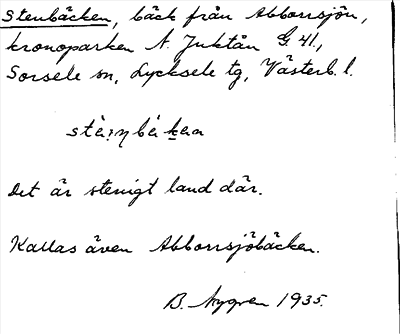 Stenbäcken, bäck från Abborrsjön,
kronoparken N. Juktån G. 41,
Sorsele sn, Lycksele tg, Västerb. l.
Det är stenigt land där.
Kallas även Abborrsjöbäcken.
B. Nygren 1935.